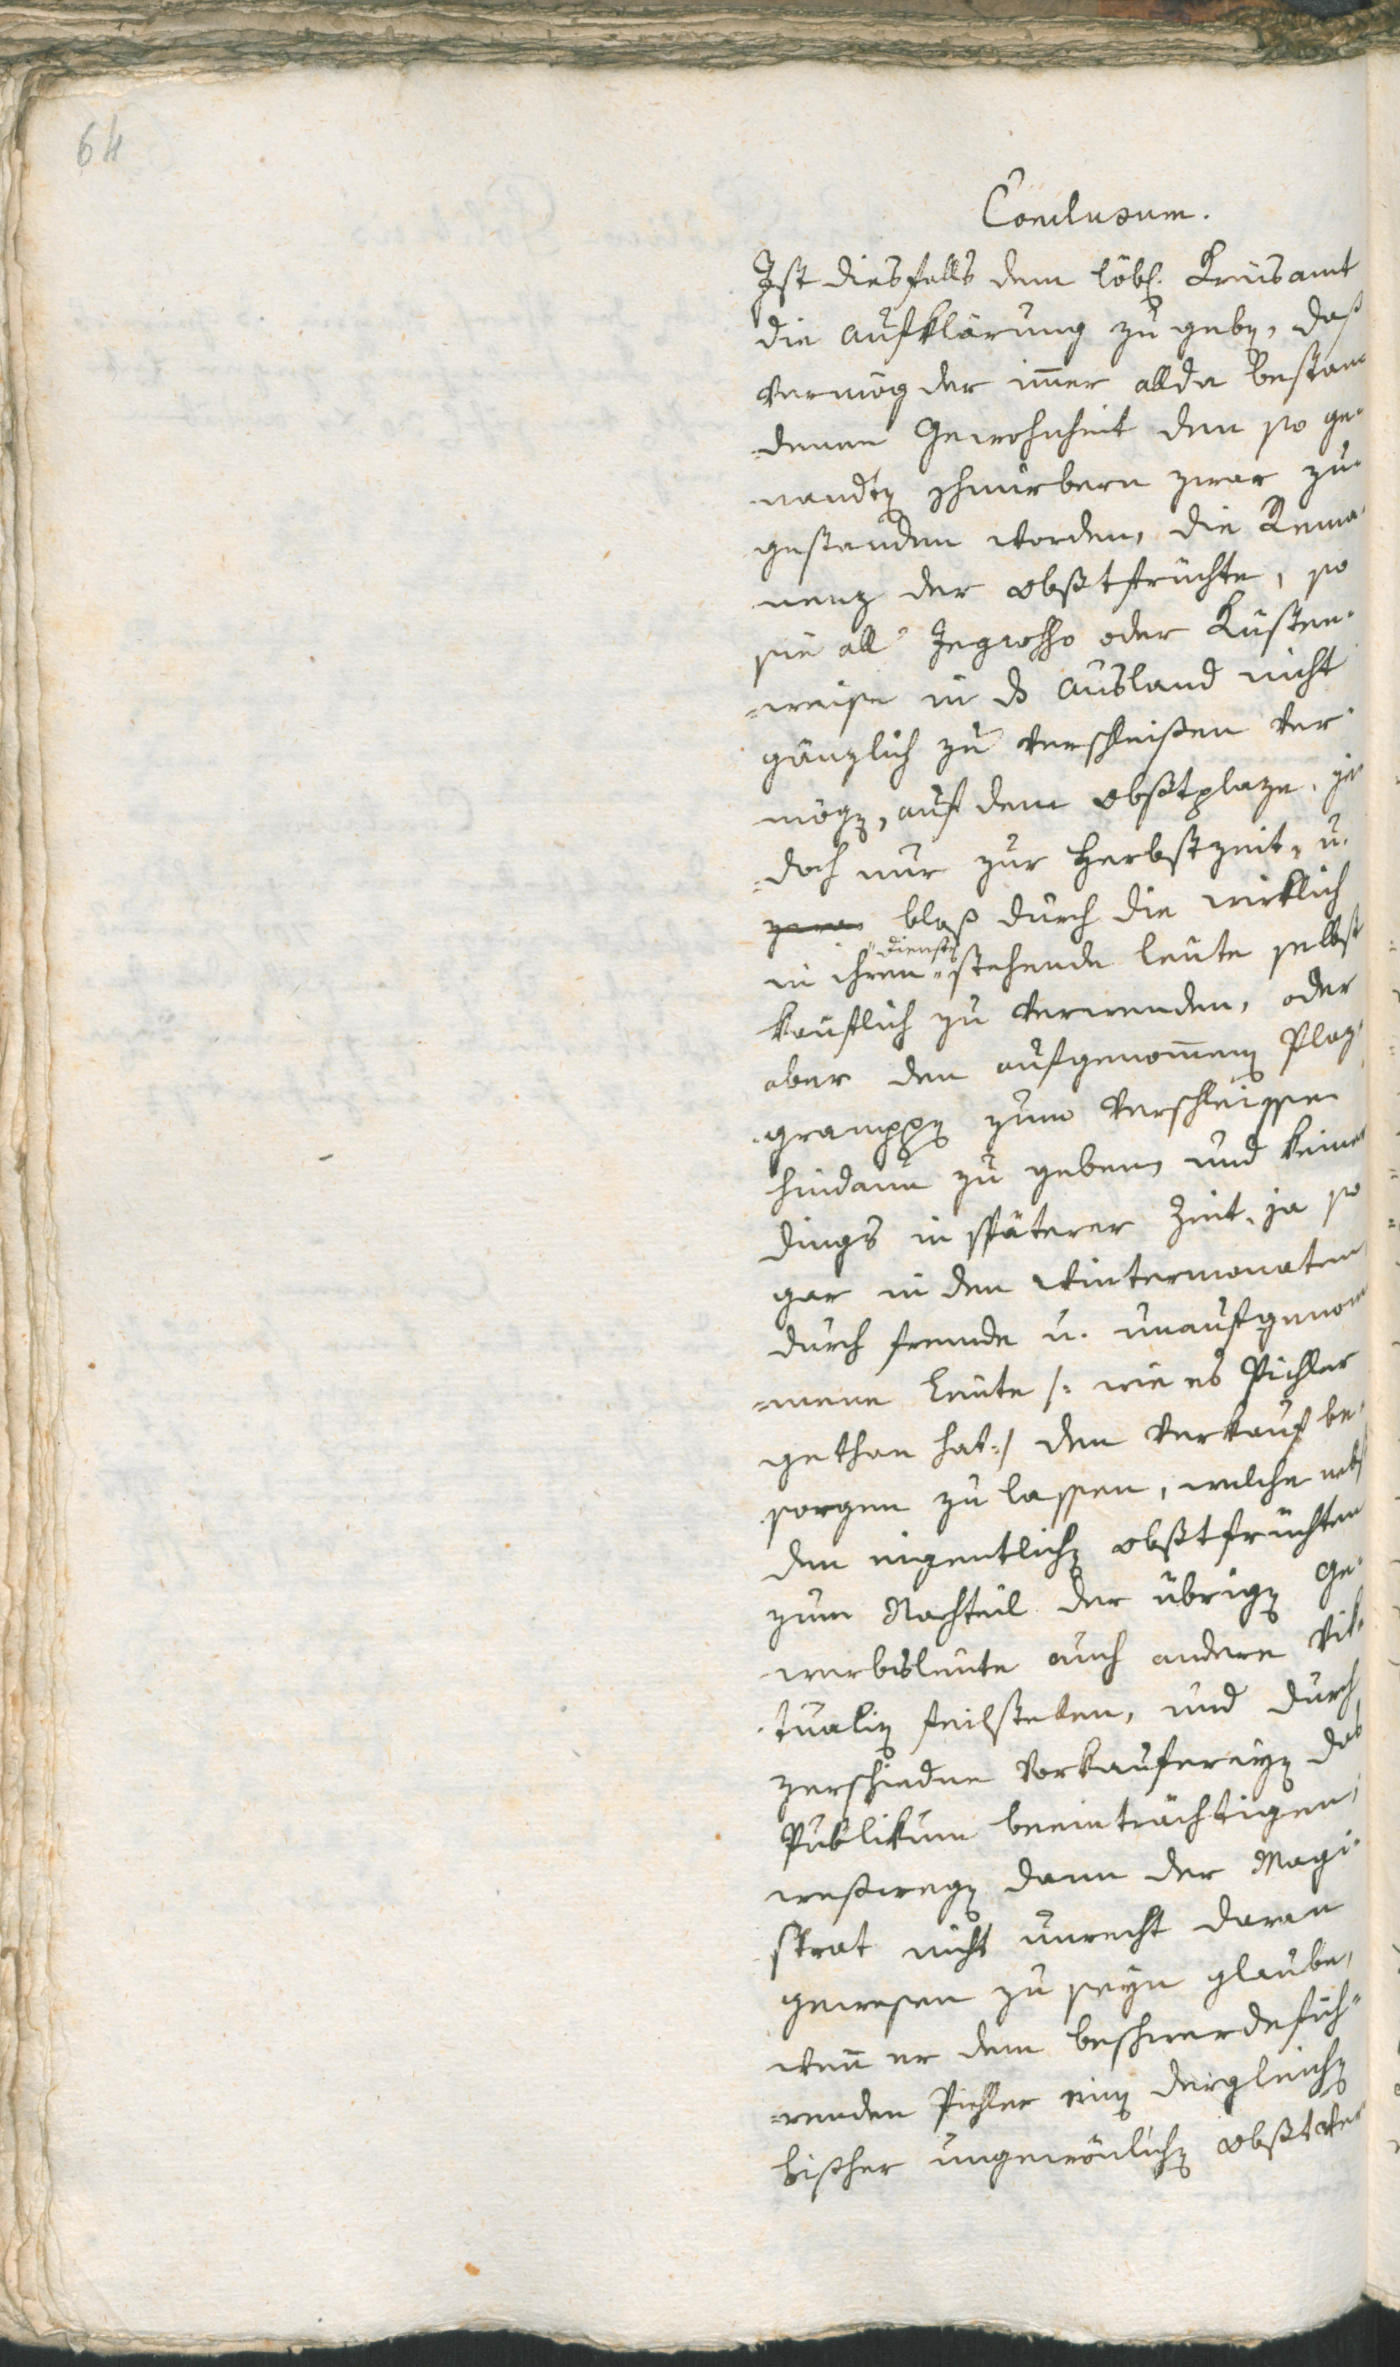 64
Conclusum.
Ist diesfalls dem löbl. Kreisamt
die aufklärung zu geben, daß
vermög der immer allda bestan
denen Gewohnheit den so ge-
nandten zhmirbern zwar zu-
gestanden worden, die Rema-
nenz der obstfrüchte, so
sie all' Ingrosso oder Kusten-
=weise in das ausland nicht
gänzlich zu verschleißen ver-
mögen, auf dem obstplaze, je
=doch nur zur Herbstzeit, u.
bloß durch die wirklich
dienst
in ihren stehende leute selbst
kauflich zu verwenden, oder
aber den aufgenommenen Plaz-
gramppen zum verschleissen
hindann zu geben, und keiner
dings in späterer Zeit, ja so
gar in den wintermonaten
durch fremde u. unaufgenom
=mene leute /: wie es Pichler
gethan hat :/ den verkauf be-
sorgen zu lassen, welche nebst
den eigentlichen obstfrüchten
zum Nachteil der übrigen Ge-
werbsleute auch andere vik-
tualien feilsteten, und durch
zerschiedne vorkaufereyen das
Publikum beeinträchtigen,
weßwegen dann der Magi-
strat nicht unrecht daran
gewesen zu seyn glaube,
wenn er dem beschwerdefüh-
=renden Pichler einen dergleichen
bisher ungewönlichen obstver